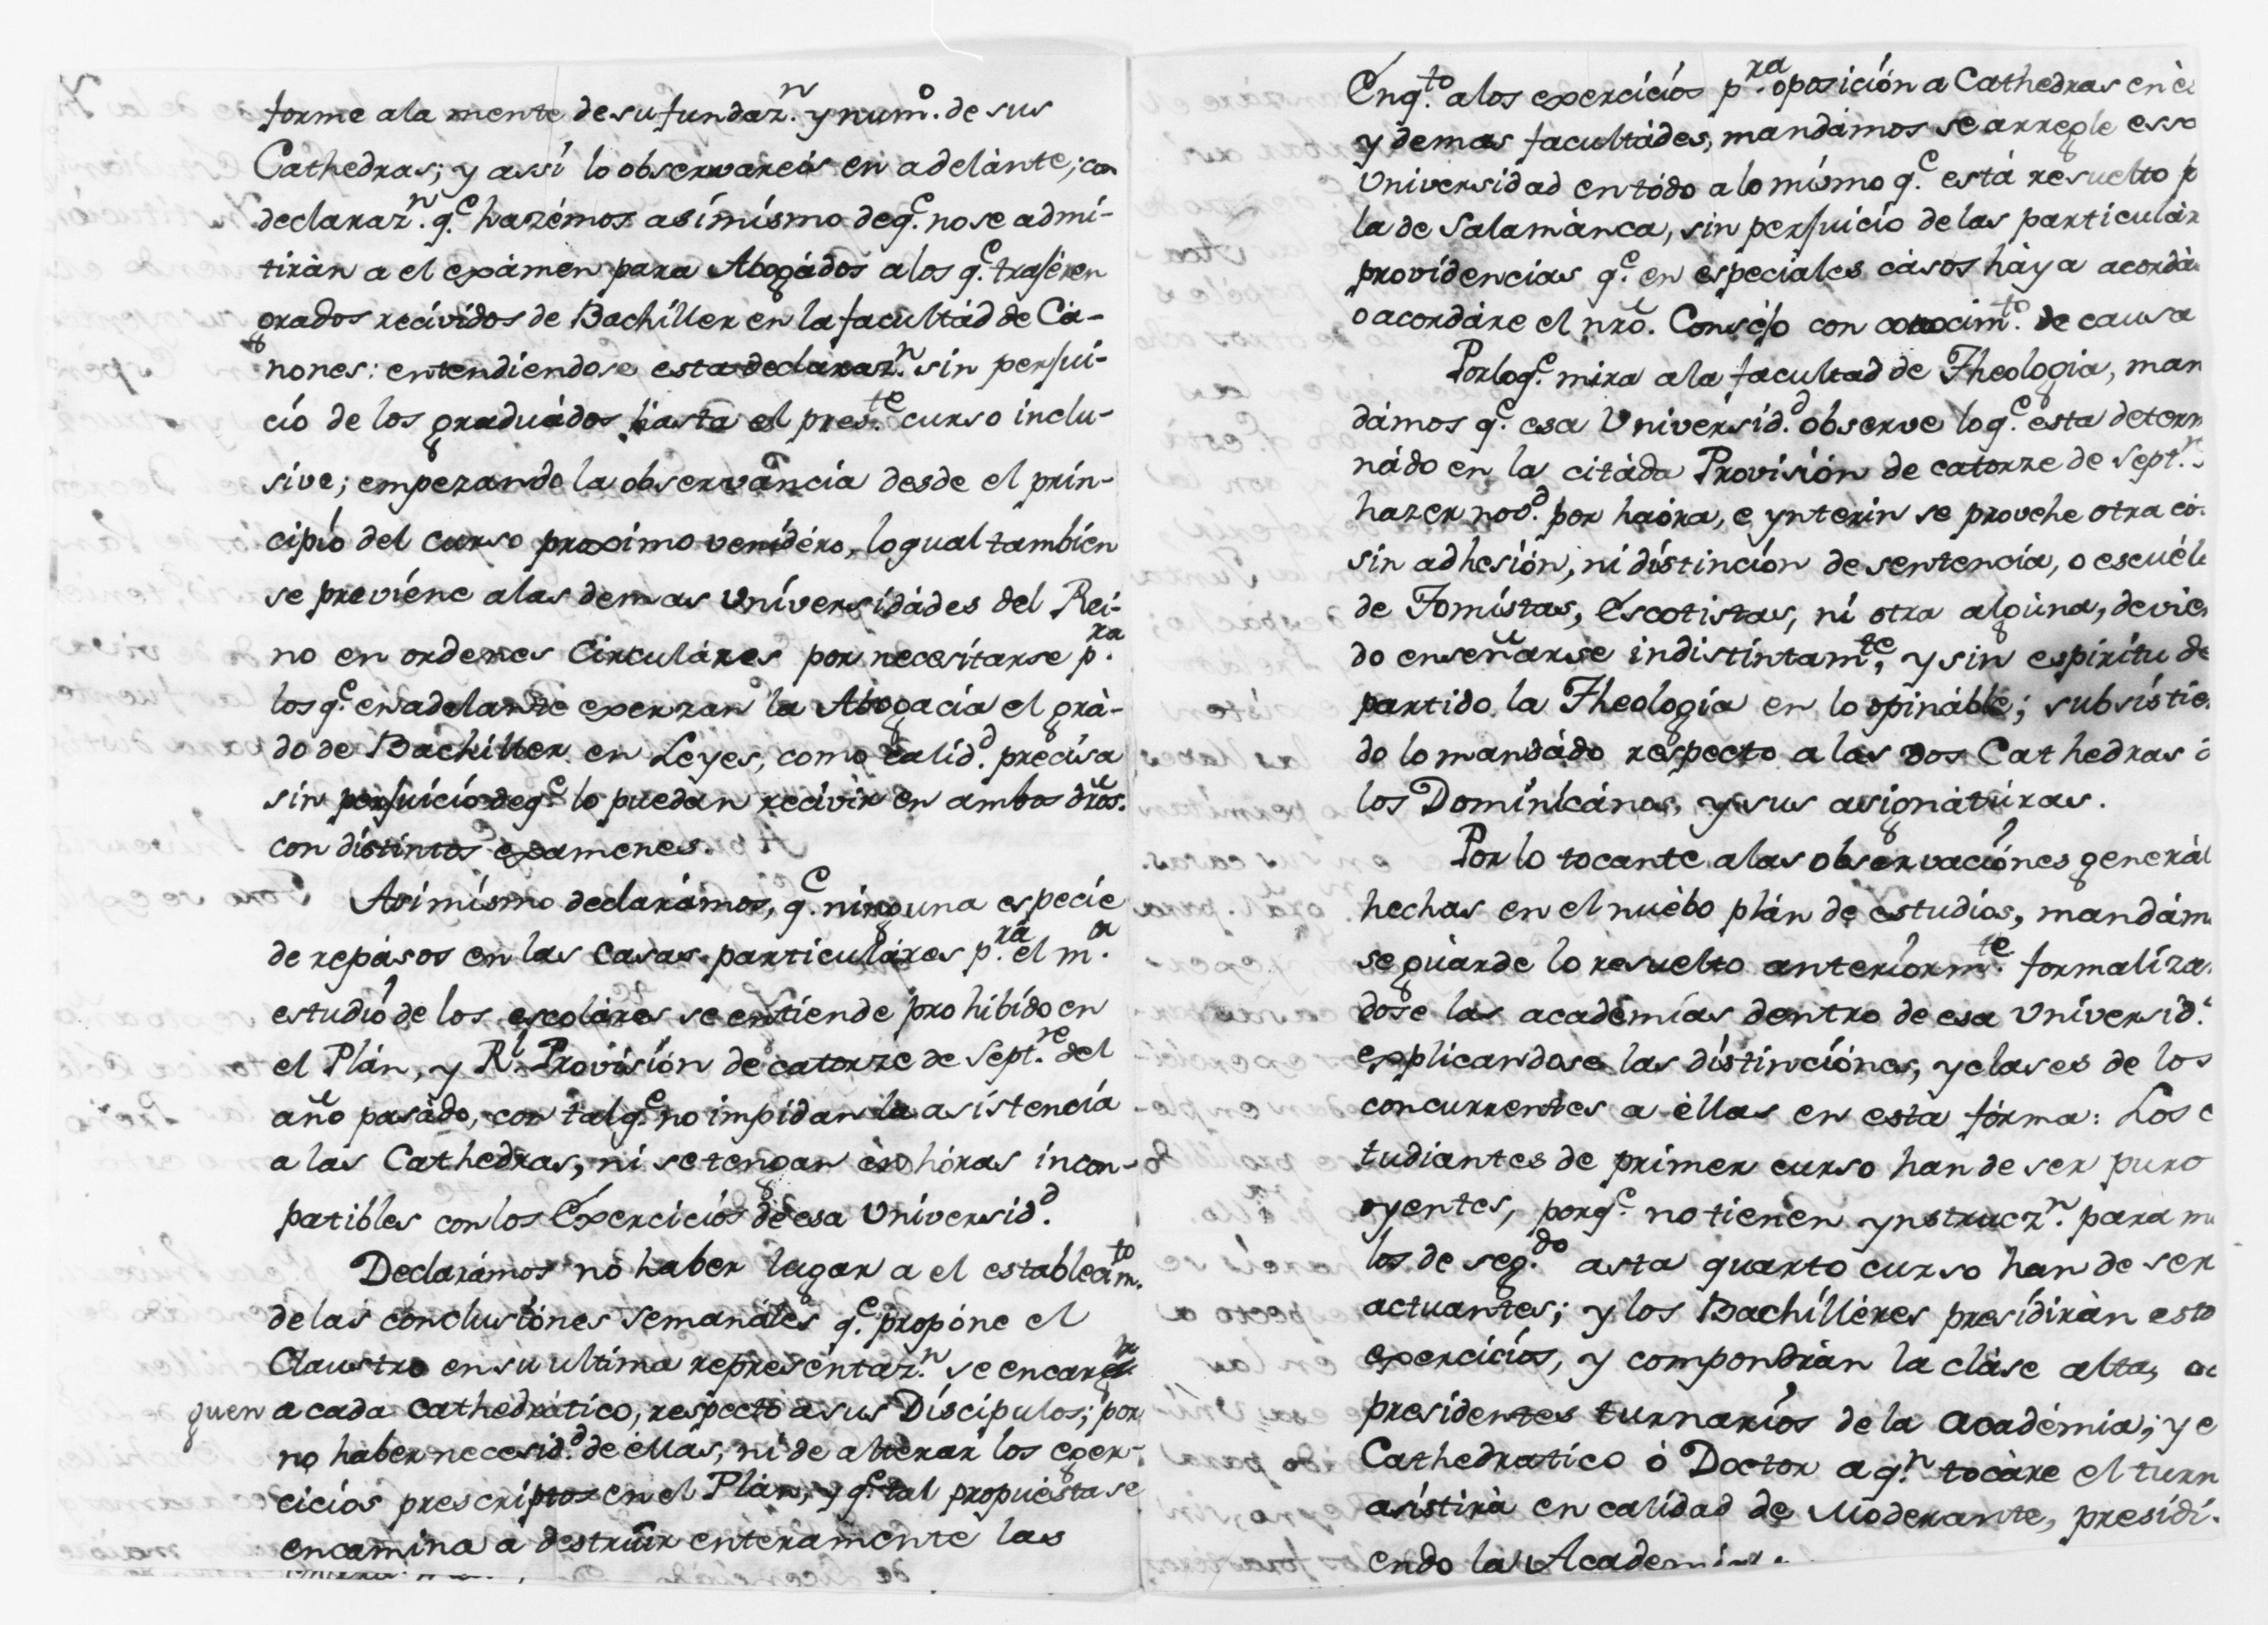 forme a la mente de su fundaz.ⁿ y num.º de sus
Cathedras; y assi lo observareis en adelànte; con
declaraz.ⁿ q.ᵉ hazémos asímísmo de q.ᵉ no se admí-
tiràn a el exàmen para Abogádos a los q.ᵉ trajéren
grados recívídos de Bachíller en la facultád de Cá-
nones: entendiendose esta declaraz.ⁿ sin perjuí-
cío de los graduádos hasta el pres.ᵗᵉ curso inclu-
sive; empezando la observancía desde el prín-
cipío del curso proximo venidéro, lo qual tambíen
se previéne a las demas Uníversidádes del Reí-
no en ordenes Circuláres por necesítarse p.ʳᵃ
los q.ᵉ en adelante exerzan la Abogacía el grà-
do de Bachiller en Leyes, como calid.ᵈ precísa
sin perjuicío de q.ᵉ lo puedan recívír en ambos dr̃os.
con dístintos examenes.
Asimísmo declarámos, q.ᵉ ninguna especíe
de repásos en las casas partículáres p.ʳᵃ el m.ᵒʳ
estudío de los escoláres se entiende prohibído en
el Plán, y R.ˡ Provísíón de catorze de Sept.ʳᵉ del
año pasàdo, con tal q.ᵉ no impidan la asístencía
a las Cathedras, ni se tengan èn hóras íncon-
patibles con los Exercicíos de esa Uníversid.ᵈ
Declarámos no haber lugar a el establecim.ᵗᵒ
de las conclusíónes semanáles q.ᵉ propóne el
Claustro en su ultima representaz.ⁿ se encar
guen a cada cathedrático, respecto a sus Díscipulos; por
no haber necesid.ᵈ de éllas, ni de alterar los exer-
cicíos prescríptos en el Plàn, y q.ᵉ tal propuésta se
encamina a destruír enteramente las
Enq.ᵗᵒ a los exercícíos p.ʳᵃ oposicíón a Cathedras en
y demas facultádes, mandámos se arregle essa
Universidad en tódo a lo mísmo q.ᵉ está resuelto p
la de Salamànca, sin perjuicío de las particulár
provídencias q.ᵉ en especiàles càsos hàya acordà
o acordáre el nr̃o. Consejo con conocim.ᵗᵒ de causa
Por lo q.ᵉ mira a la facultad de Theologia, man
dámos q.ᵉ esa Universid.ᵈ observe lo q.ᵉ esta determ
nádo en la citàda Provisión de catorze de Sept.ʳᵉ
hazer nov.ᵈ por haóra, e ynterin se provehe otra co
sin adhesíón, ni dístincíón de sentencía, o escuéla
de Tomístas, Escotistas, ní otra algùna, devien
do enseñarse indistíntam.ᵗᵉ, y sin espirítu de
partido la Theología en lo opináble; subsístie
do lo mandádo respecto a las dos Cathedras
los Domínicános, y sus asignatúras.
Por lo tocante a las observacíónes generál
hechas en el nuèbo plán de estudíos, mandám
se guàrde lo resuelto anteríorm.ᵗᵉ formalíza
dose las académías dentro de esa Universid.ᵈ
explicandose las dístincíónes, y clases de los
concurrentes a èllas en està fórma: Los e
tudiantes de primer curso han de ser puro
oyentes, porq.ᵉ no tienen ynstrucz.ⁿ para m
los de seg.ᵈᵒ asta quarto curso han de ser
actuantes; y los Bachílléres presídiràn esto
exercícíos, y compondràn la clàse alta,
presidentes turnaríos de la académia; y e
Cathedratíco ò Doctor a q.ⁿ tocàre el turn
asístirà en calídad de Moderante, presidi-
endo la Academia.